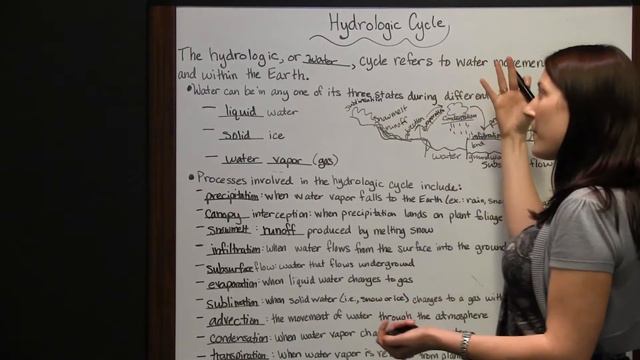 Hydrologic Cycle
The hydrologic, or water, cycle refers to water movement
and within the Earth.
• Water can be in any one of its three states during different
— liquid water
— solid ice
— water vapor (gas)
sublimation
snowmelt
runoff
advection
evaporation
condensation
infiltration
land
water
groundwater
subsurface flow
• Processes involved in the hydrologic cycle include:
— precipitation: when water vapor falls to the Earth (ex.: rain, snow
— canopy interception: when precipitation lands on plant foliage
— snowmelt: runoff produced by melting snow
— infiltration: when water flows from the surface into the ground
— subsurface flow: water that flows underground
— evaporation: when liquid water changes to gas
— sublimation: when solid water (i.e., snow or ice) changes to a gas
— advection: the movement of water through the atmosphere
— condensation: when water vapor
— transpiration: when water vapor is from